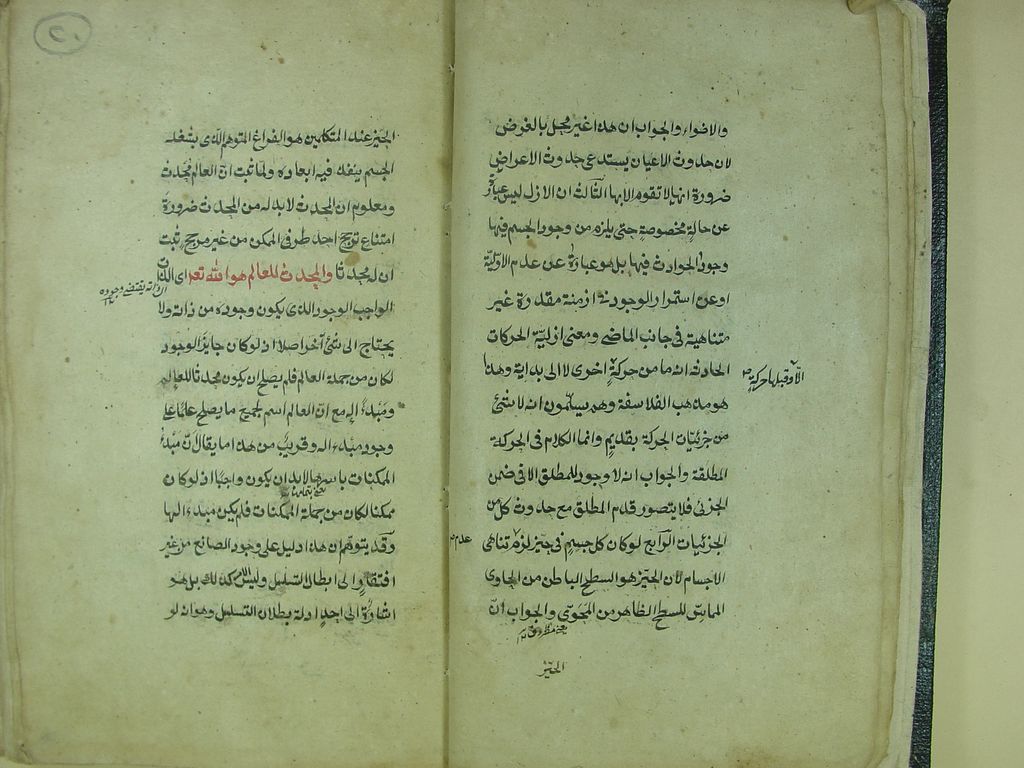 والاضواء والجواب ان هذا غير مخل بالغرض
لان حدوث الاعيان يستدعى حدوث الاعراض
ضرورة انها لا تقوم الا بها الثالث ان الازل ليس عبارة
عن حالة مخصوصة حتى يلزم من وجود الجسم فيها
وجود الحوادث فيها بل هو عبارة عن عدم الاولية
او عن استمرار الوجود فى ازمنة مقدرة غير
متناهية فى جانب الماضى ومعنى ازلية الحركات
الحادثة انه ما من حركة اخرى لا الى بداية وهذا
الا وقبلها حركة صح
هو مذهب الفلاسفة وهم يسلمون انه لا شئ
من جزئيات الحركة بقديم وانما الكلام فى الحركة
المطلقة والجواب انه لا وجود للمطلق الا فى ضمن
الجزئى فلا يتصور قدم المطلق مع حدوث كل من
الجزئيات الرابع لو كان كل جسم فى حيز لزم تناهى
عدم صح
الاجسام لان الحيز هو السطح الباطن من الحاوى
المماس للسطح الظاهر من المحوى والجواب ان
الحيز
٢٠
الحيز عند المتكلمين هو الفراغ المتوهم الذى يشغله
الجسم ينفذ فيه ابعاده ولما ثبت ان العالم محدث
ومعلوم ان المحدث لا بد له من المحدث ضرورة
امتناع ترجح احد طرفى الممكن من غير مرجح ثبت
ان له محدثا والمحدث للعالم هو الله تعم اى الذات
ان ذاته يقتضى وجوده
الواجب الوجود الذى يكون وجوده من ذاته ولا
يحتاج الى شئ آخر اصلا اذ لو كان جايز الوجود
لكان من جملة العالم فلم يصلح ان يكون محدثا للعالم
ومبدء اله مع ان العالم اسم لجميع ما يصلح علما على
وجود مبدء اله وقريب من هذا ما يقال ان مبدء
الممكنات باسرها لا بد ان يكون واجبا اذ لو كان
ممكنا لكان من جملة الممكنات فلم يكن مبدء الها
وقد يتوهم ان هذا دليل على وجود الصانع من غير
افتقار الى ابطال التسلسل وليس كذلك بل هو
اشارة الى احد ادلة بطلان التسلسل وهو انه لو